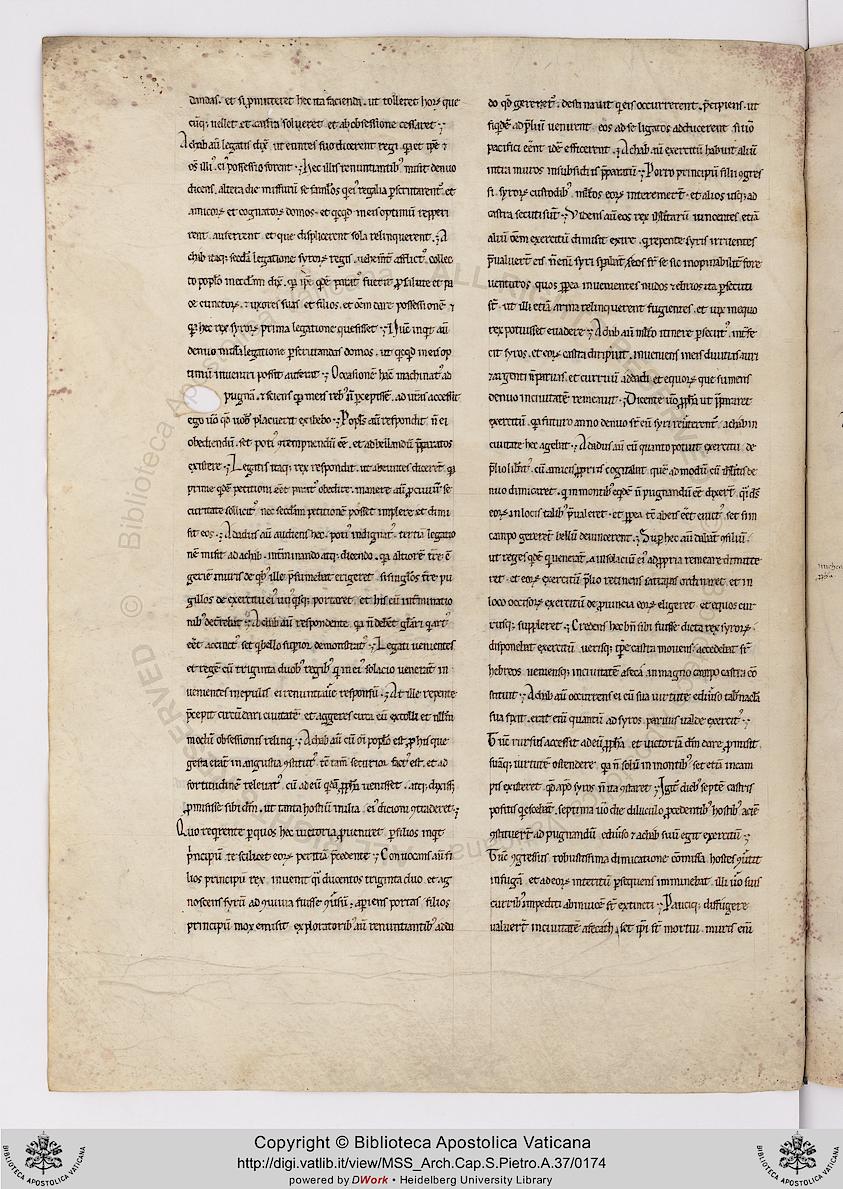 dandas. et si pmitteret hec ita faciendi. ut tolleret hors que
cūq; uellet et castra solueret et ab obsessione cessaret
Achab aū legatis dix̄ ut euntes suo dicerent regi. qa et ipse et
oš illi⁹ ei⁹ possessio forent. hec illis renuntiantib⁹ misit denuo
dicens. altera die missurū se famlos q ei⁹ regalia pscrutarent et
amicor et cognator domos. et qcqd in eis optimū repperi
rent auferrent et que displicerent sola relinquerent. A
chab itaq; scda legatione syror regis uehemt afflict⁹ collec
to poplo in ecclam dix̄. qa ipe qde parat⁹ fuerit p salute et pa
ce cunctor. et uxores suas et filios. et oēm dare possessionē
qa hec rex syror prima legatione quesisset. Nūc inqt aū
denuo missa legatione pscrutandas domos. ut qcqd in eis op
timū inueniri possit auferat. Occasionē hanc machinat⁹ ad
pugnā. et sciens qa meis reb⁹ n pcepissē. ad uras accessit
ego uo qd uob placuerit exibebo. Popls aū respondit n ei
obediendū. set poti⁹ temnendū ēē. et ad bellandū paratos
existere. Legatis itaq; rex respondit. ut abeuntes dicerēt qa
prime qde petitioni eēt parat⁹ obedire. manere aū p ciuiū se
curitate sollicit⁹. nec scdam petitionē posset implere. et dimi
sit eos. Adadus aū audiens hec. poti⁹ indignat⁹. tertiā legatio
nē misit ad achab. intminando atq; dicendo. qa altiorē tre
geriē muris de qb⁹ ille psumebat erigeret. si singlos tre pu
gillos de exercitu ei⁹ unqsq; portaret. et his eū intminatio
nib⁹ deterrebat. Achab aū respondente. qa n deberet gllari q art⁹
eēt accinct⁹ set q bello supior demonstrat⁹. Legati uenientes
et regē cū triginta duob⁹ regib⁹ q in ei⁹ solacio uenerāt in
uenientes in epulis. ei renuntiauere responsū. At ille repente
pcepit circūdari ciuitatē. et aggeres circa eū extolli et nllm
modū obsessionis relinq. Achab aū cū oī poplo est. p his que
gesta erant in angustia ystitut⁹. tam securior fact⁹ est. et ad
fortitudinē releuat⁹. cū ad eū qda ppha uenisset. atq; dixiss
pmisisse sibi dnm. ut tanta hostiū milia ei⁹ dicioni traderet
Quo reqrente p quos hec uictoria pueniret. p filios inqt
principū. te scilicet eor peritia pcedente. Conuocans aū fi
lios principū rex. inuenit qs ducentos triginta duo. et ag
noscens syrū ad conuiuia fuisse uersū. apriens portas filios
principū mox emisit. exploratorib⁹ aū renuntiantib⁹ adda
do qd gereret. destinauit q eis occurrerent. pcipiens. ut
siqde ad pliū uenirent eos ad se ligatos adducerent. si uo
pacifici eent idē efficerent. Achab aū exercitū habuit aliū
intra muros in subsidiis paratū. Porro principū filii ogres
si. syror custodib⁹. mltos eor interemert. et alios usq; ad
castra secuti sunt. Videns aū eos rex isrlitarū uincentes. etiā
aliū oēm exercitū dimisit exire. q repente syris irruentes
pualuert eis. n eni syri spabant eos se sic inopinabilit fore
uenturos. quos ppea inuenientes nudos et ebrios ita psecuti
st. ut illi etiā arma relinquerent fugientes. et uix in equo
rex potuisset euadere. Achab aū mlto itinere psecut⁹ intfe
cit syros. et eor castra diripuit. inueniens in eis diuitias auri
et argenti n paruas. et curruū adadi et equor. que sumens
denuo in ciuitatē remeauit. Dicente uo ppha ut pararet
exercitū. qa futuro anno denuo st eū syri reuterent. achab in
ciuitate hec agebat. Adadus aū cū quanto potuit exercitu de
plio libat⁹. cū amicis ppriis cogitabat. que ad modū cū isrlitis de
nuo dimicaret. q in montib⁹ eqde n pugnandū eēt dixert. qa ds
eor in locis talib⁹ pualeret. et ppea tc ab eis eēt euict⁹. set si in
campo gererēt bellū deuincerent. Sup hec aū dabant csiliū
ut reges qde q uenerant. in solaciū ei⁹ ad ppria remeare dimitte
ret. et eor exercitū plio retinens satrapas ordinaret. et in
loco occisor exercitū de puincia eor eligeret. et equos cur
rusq; suppleret. Credens hec bn sibi fuisse dicta rex syror.
disponebat exercitū. uerisq; tpe castra mouens. accedebat st
hebreos. ueniensq; in ciuitatē afeca. in magno campo castra cō
stituit. Achab aū occurrens ei cū sua uirtute. e diuso tabnacla
sua fixit. erat eni quantū ad syros. paruus ualde exercit⁹.
Tuc rursus accessit ad eū ppha. et uictoria dnm dare pmisit.
suāq; uirtutē ostendere. qa n solū in montib⁹ set etiā in cam
pis existeret. qd apd syros n ita staret. Igit dieb⁹ septē castris
positis qescebat. septima uo die diluculo pcedentib⁹ hostib⁹ aciē
stituert ad pugnandū. e diuso et achab suū egit exercitū.
Tuc gressus robustissima dimicatione cōmissa. hostes uertit
in fugā. et ad eor interitū psequens imminebat. illi uo suis
currib⁹ impediti. ab inuicē st extincti. Pauciq; diffugere
ualuert in ciuitatē afecath. set ipi st mortui. muris eni
Copyright © Biblioteca Apostolica Vaticana
http://digi.vatlib.it/view/MSS_Arch.Cap.S.Pietro.A.37/0174
powered by DWork • Heidelberg University Library
BIBLIOTECA APOSTOLICA VATICANA
BIBLIOTECA APOSTOLICA VATICANA